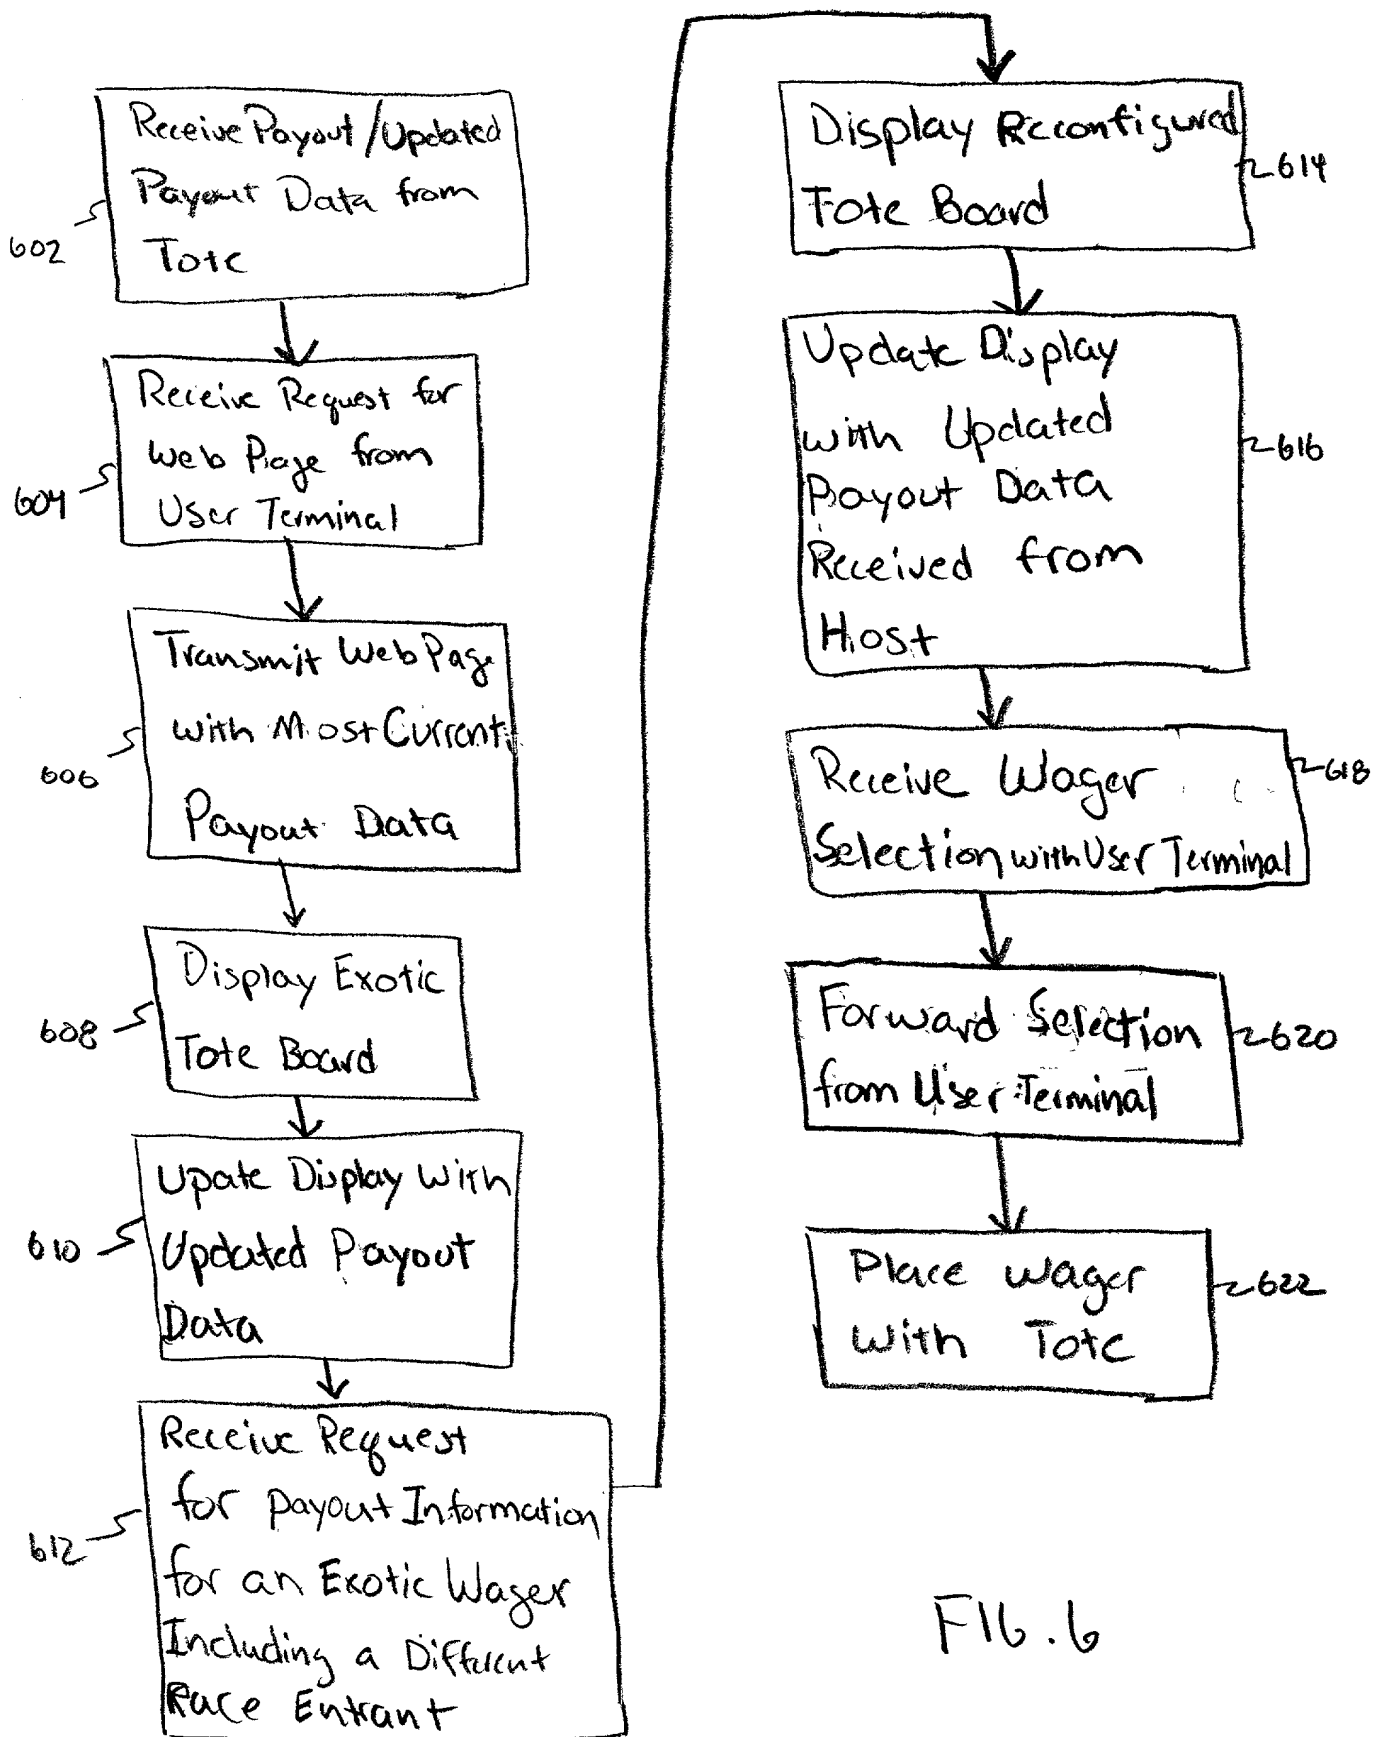 Receive Payout/Updated
Payout Data from
Tote
602
Receive Request for
Web Page from
User Terminal
604
Transmit Web Page
with Most Current
Payout Data
606
Display Exotic
Tote Board
608
Upate Display With
Updated Payout
Data
610
Receive Request
for Payout Information
for an Exotic Wager
Including a Different
Race Entrant
612
Display Reconfigured
Tote Board
614
Update Display
with Updated
Payout Data
Received from
Host
616
Receive Wager
Selection with User Terminal
618
Forward Selection
from User Terminal
620
Place Wager
With Tote
622
FIG. 6